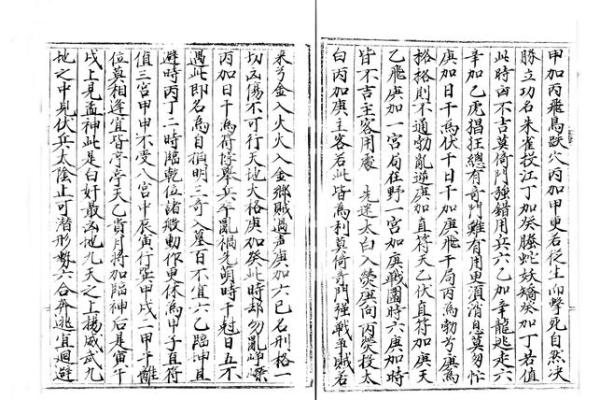 甲加丙飛鳥跌穴丙加甲更看從生向擊死自然決
勝立功名朱雀投江丁加癸螣蛇妖矯癸加丁若值
此時凶不吉莫倚門強錯用兵六乙加辛龍逃走六
辛加乙虎猖狂總有奇門難有用更須消息莫匆忙
庚加日干為伏干日干加庚飛干局丙為勃兮庚為
格格則不通勃亂逆庚加直符天乙伏直符加庚天
乙飛庚加一宮局在野一宮加庚戰國時六庚加時
皆不吉主客用處 先迷太白入熒庚向丙熒投太
白丙加庚主客若此皆為利莫倚奇門強戰爭賊若
來兮金入火火入金鄉賊過聲庚加六己名刑格一
切凶傷不可行天地大格庚加癸此時却勿亂崢嶸
丙加日干為符悖舉兵軍亂禍先萌時干尅日五不
遇此即名為自損明三奇入墓百不宜六乙臨坤且
避時丙丁二時臨乾位諸般動作更休為甲子直符
值三宮甲申不受八宮中辰寅行巽甲戌一甲午離
位莫相逢宜背亭亭天乙貴月將加臨神后是寅午
戌上見孟神此是白奸最凶地九天之上揚威武九
地之中見伏兵太陰止可潛形勢六合奔逃宜迴避